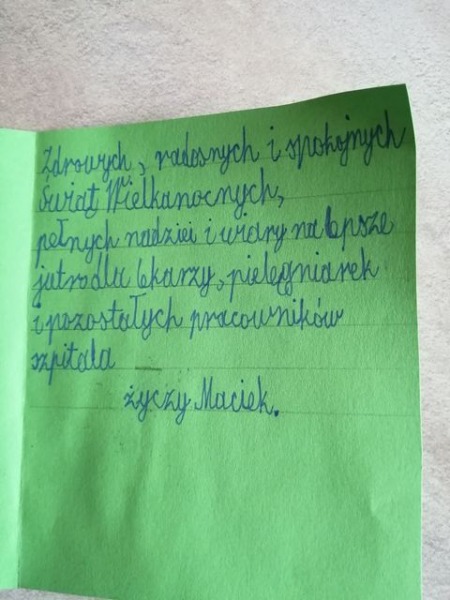 Zdrowych, radosnych i spokojnych
Świąt Wielkanocnych,
pełnych nadziei i wiary na lepsze
jutro dla lekarzy, pielęgniarek
i pozostałych pracowników
szpitala
życzy Maciek.